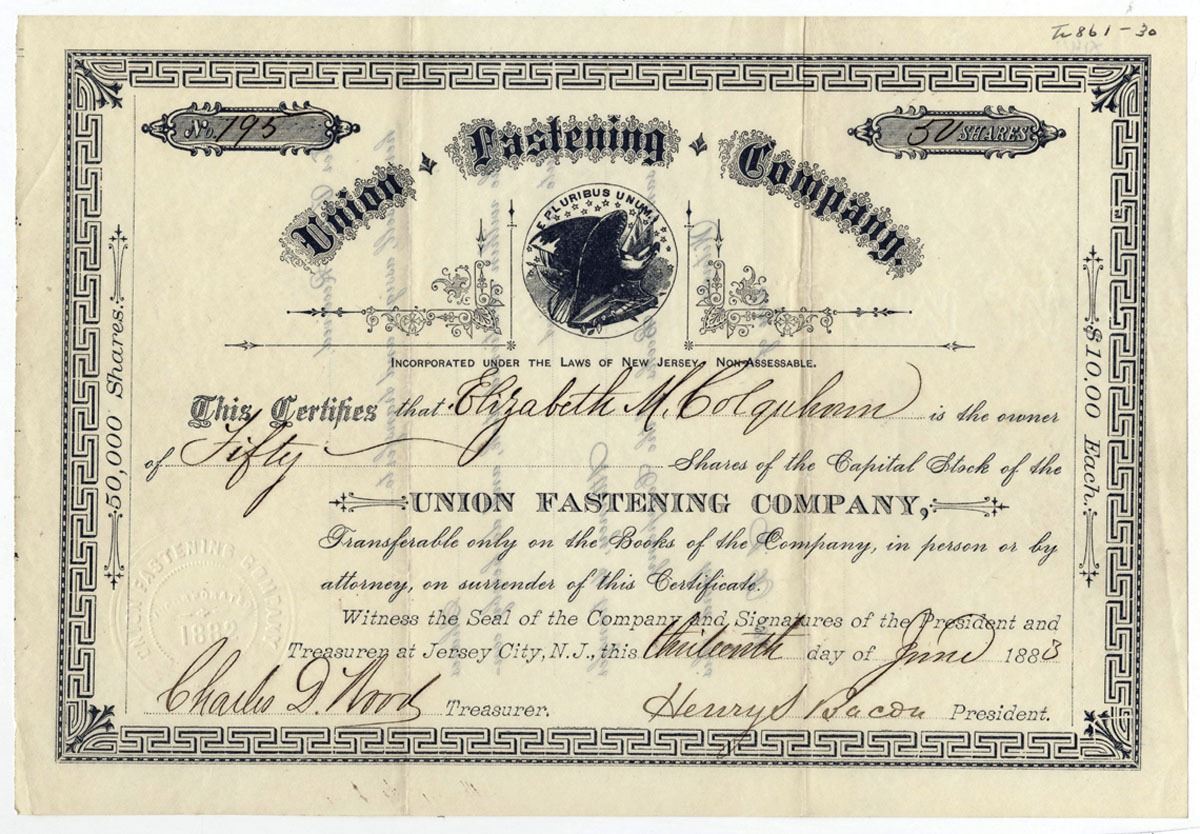 Tr 861-30
No. 195
50 SHARES
Union Fastening Company.
E PLURIBUS UNUM
INCORPORATED UNDER THE LAWS OF NEW JERSEY. NON-ASSESSABLE.
50,000 Shares.
$10.00 Each.
This Certifies that Elizabeth M. Colquhoun is the owner
of Fifty Shares of the Capital Stock of the
UNION FASTENING COMPANY,
Transferable only on the Books of the Company, in person or by
attorney, on surrender of this Certificate.
Witness the Seal of the Company and Signatures of the President and
Treasurer at Jersey City, N.J., this thirteenth day of June 1883
UNION FASTENING COMPANY
INCORPORATED
1882
Charles D. Wood Treasurer.
Henry S Bacon President.